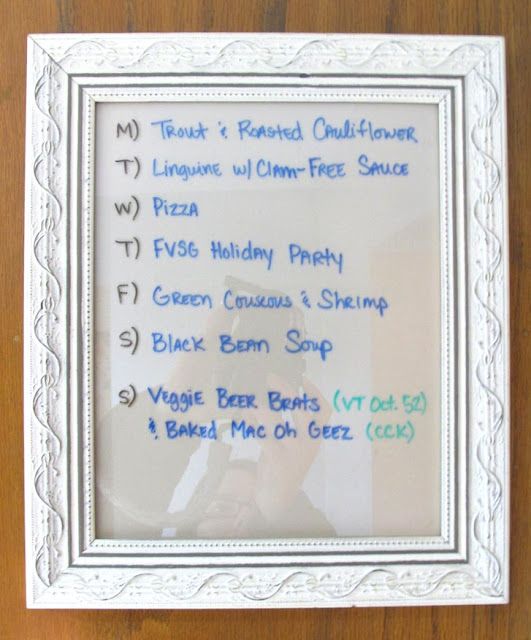 M) Trout & Roasted Cauliflower
T) Linguine w/ Clam-Free Sauce
W) Pizza
T) FVSG Holiday Party
F) Green Couscous & Shrimp
S) Black Bean Soup
S) Veggie Beer Brats (VT Oct. 52)
& Baked Mac Oh Geez (CCK)